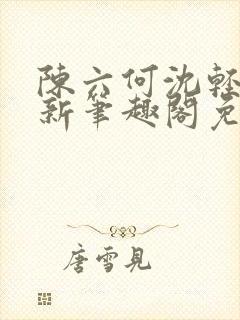 陳六何沈輕
新筆趣閣免
唐雪見